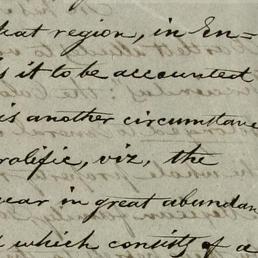 that region, in En=
is it to be accounted
is another circumstance
prolific, viz, the
year in great abundan
which consists of a